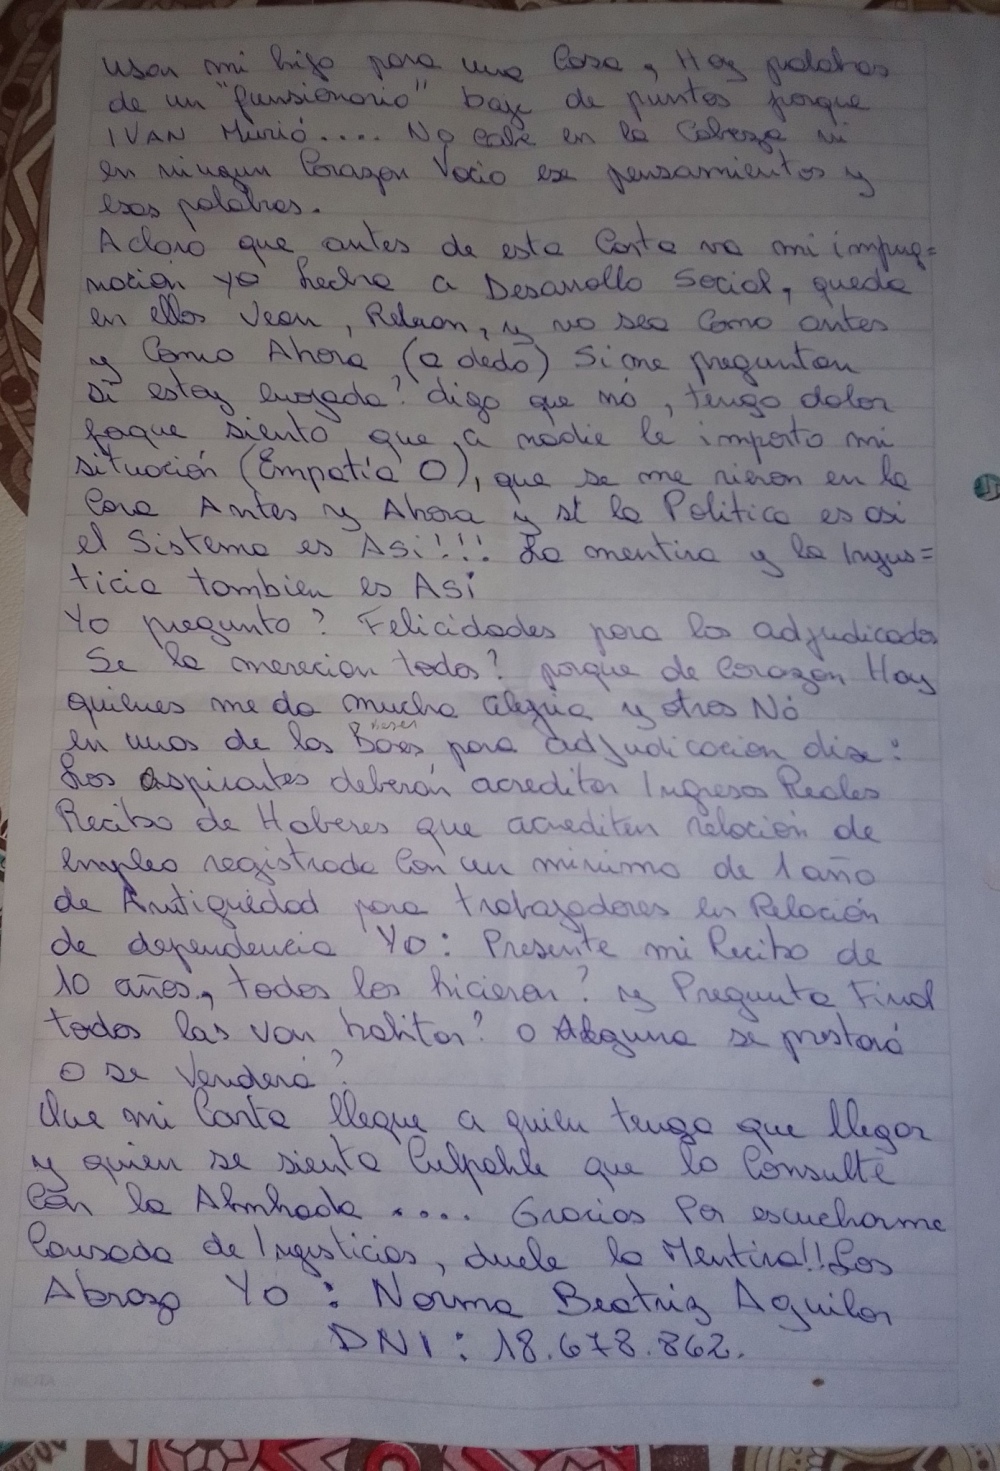 usar mi hijo para una Casa, Hay palabras
de un "funsionario" baje de puntos porque
IVAN Murió.... No cabe en la Cabeza ni
en ningun Corazon Vacio ese pensamientos y
esas palabras.
Aclaro que antes de esta Carta va mi impug=
nación ya hecha a Desarrollo Social, queda
en ellos Vean, Relean, y no sea Como antes
y Como Ahora (a dedo) Si me preguntan
si estoy enojada? digo que no, tengo dolor
porque siento que a nadie le importo mi
situación (Empatía O), que se me rieron en la
Cara Antes y Ahora y si la Politica es asi
el Sistema es Asi!!! La mentira y la Injus=
ticia tambien es Asi
Yo pregunto? Felicidades para los adjudicados
Se la merecian todos? porque de Corazón Hay
quienes me da mucha alegria y otros No
en unos de las Bases para adjudicacion dise:
Los aspirantes deberán acreditar Ingresos Reales
Recibo de Haberes que acrediten relación de
empleo registrado Con un minimo de 1 año
de Antiguedad para trabajadores en Relación
de dependencia Yo: Presente mi Recibo de
10 años, todos los hicieron? y Pregunta Final
todos las van habitar? o Alguna se prestará
o se Vendera?
Que mi Carta llegue a quien tenga que llegar
y quien se sienta Culpable que lo Consulte
Con la Almhada.... Gracias Por escucharme
Cansada de Injusticias, duele la Mentira!! Los
Abrazo Yo: Norma Beatriz Aguilar
DNI: 18.678.862.